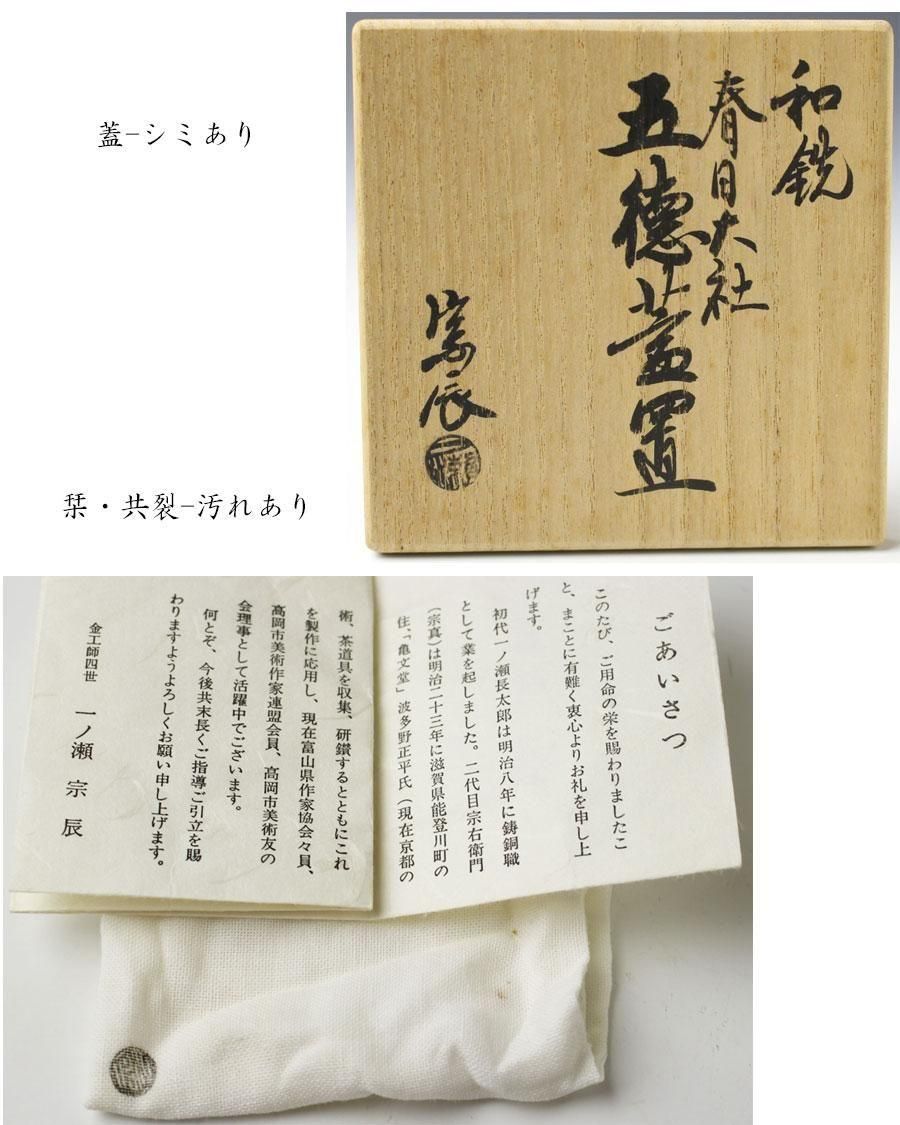 蓋-シミあり
和銑
春日大社
五徳蓋置
宗辰
栞・共裂-汚れあり
ごあいさつ
このたび、ご用命の栄を賜わりましたこ
と、まことに有難く衷心よりお礼を申し上
げます。
初代一ノ瀬長太郎は明治八年に鋳銅職
として業を起しました。二代目宗右衛門
(宗真)は明治二十三年に滋賀県能登川町の
住、「亀文堂」波多野正平氏(現在京都の
術、茶道具を収集、研鑚するとともにこれ
を製作に応用し、現在富山県作家協会々員、
高岡市美術作家連盟会員、高岡市美術友の
会理事として活躍中でございます。
何とぞ、今後共末長くご指導ご引立を賜
わりますようよろしくお願い申し上げます。
金工師四世 一ノ瀬宗辰